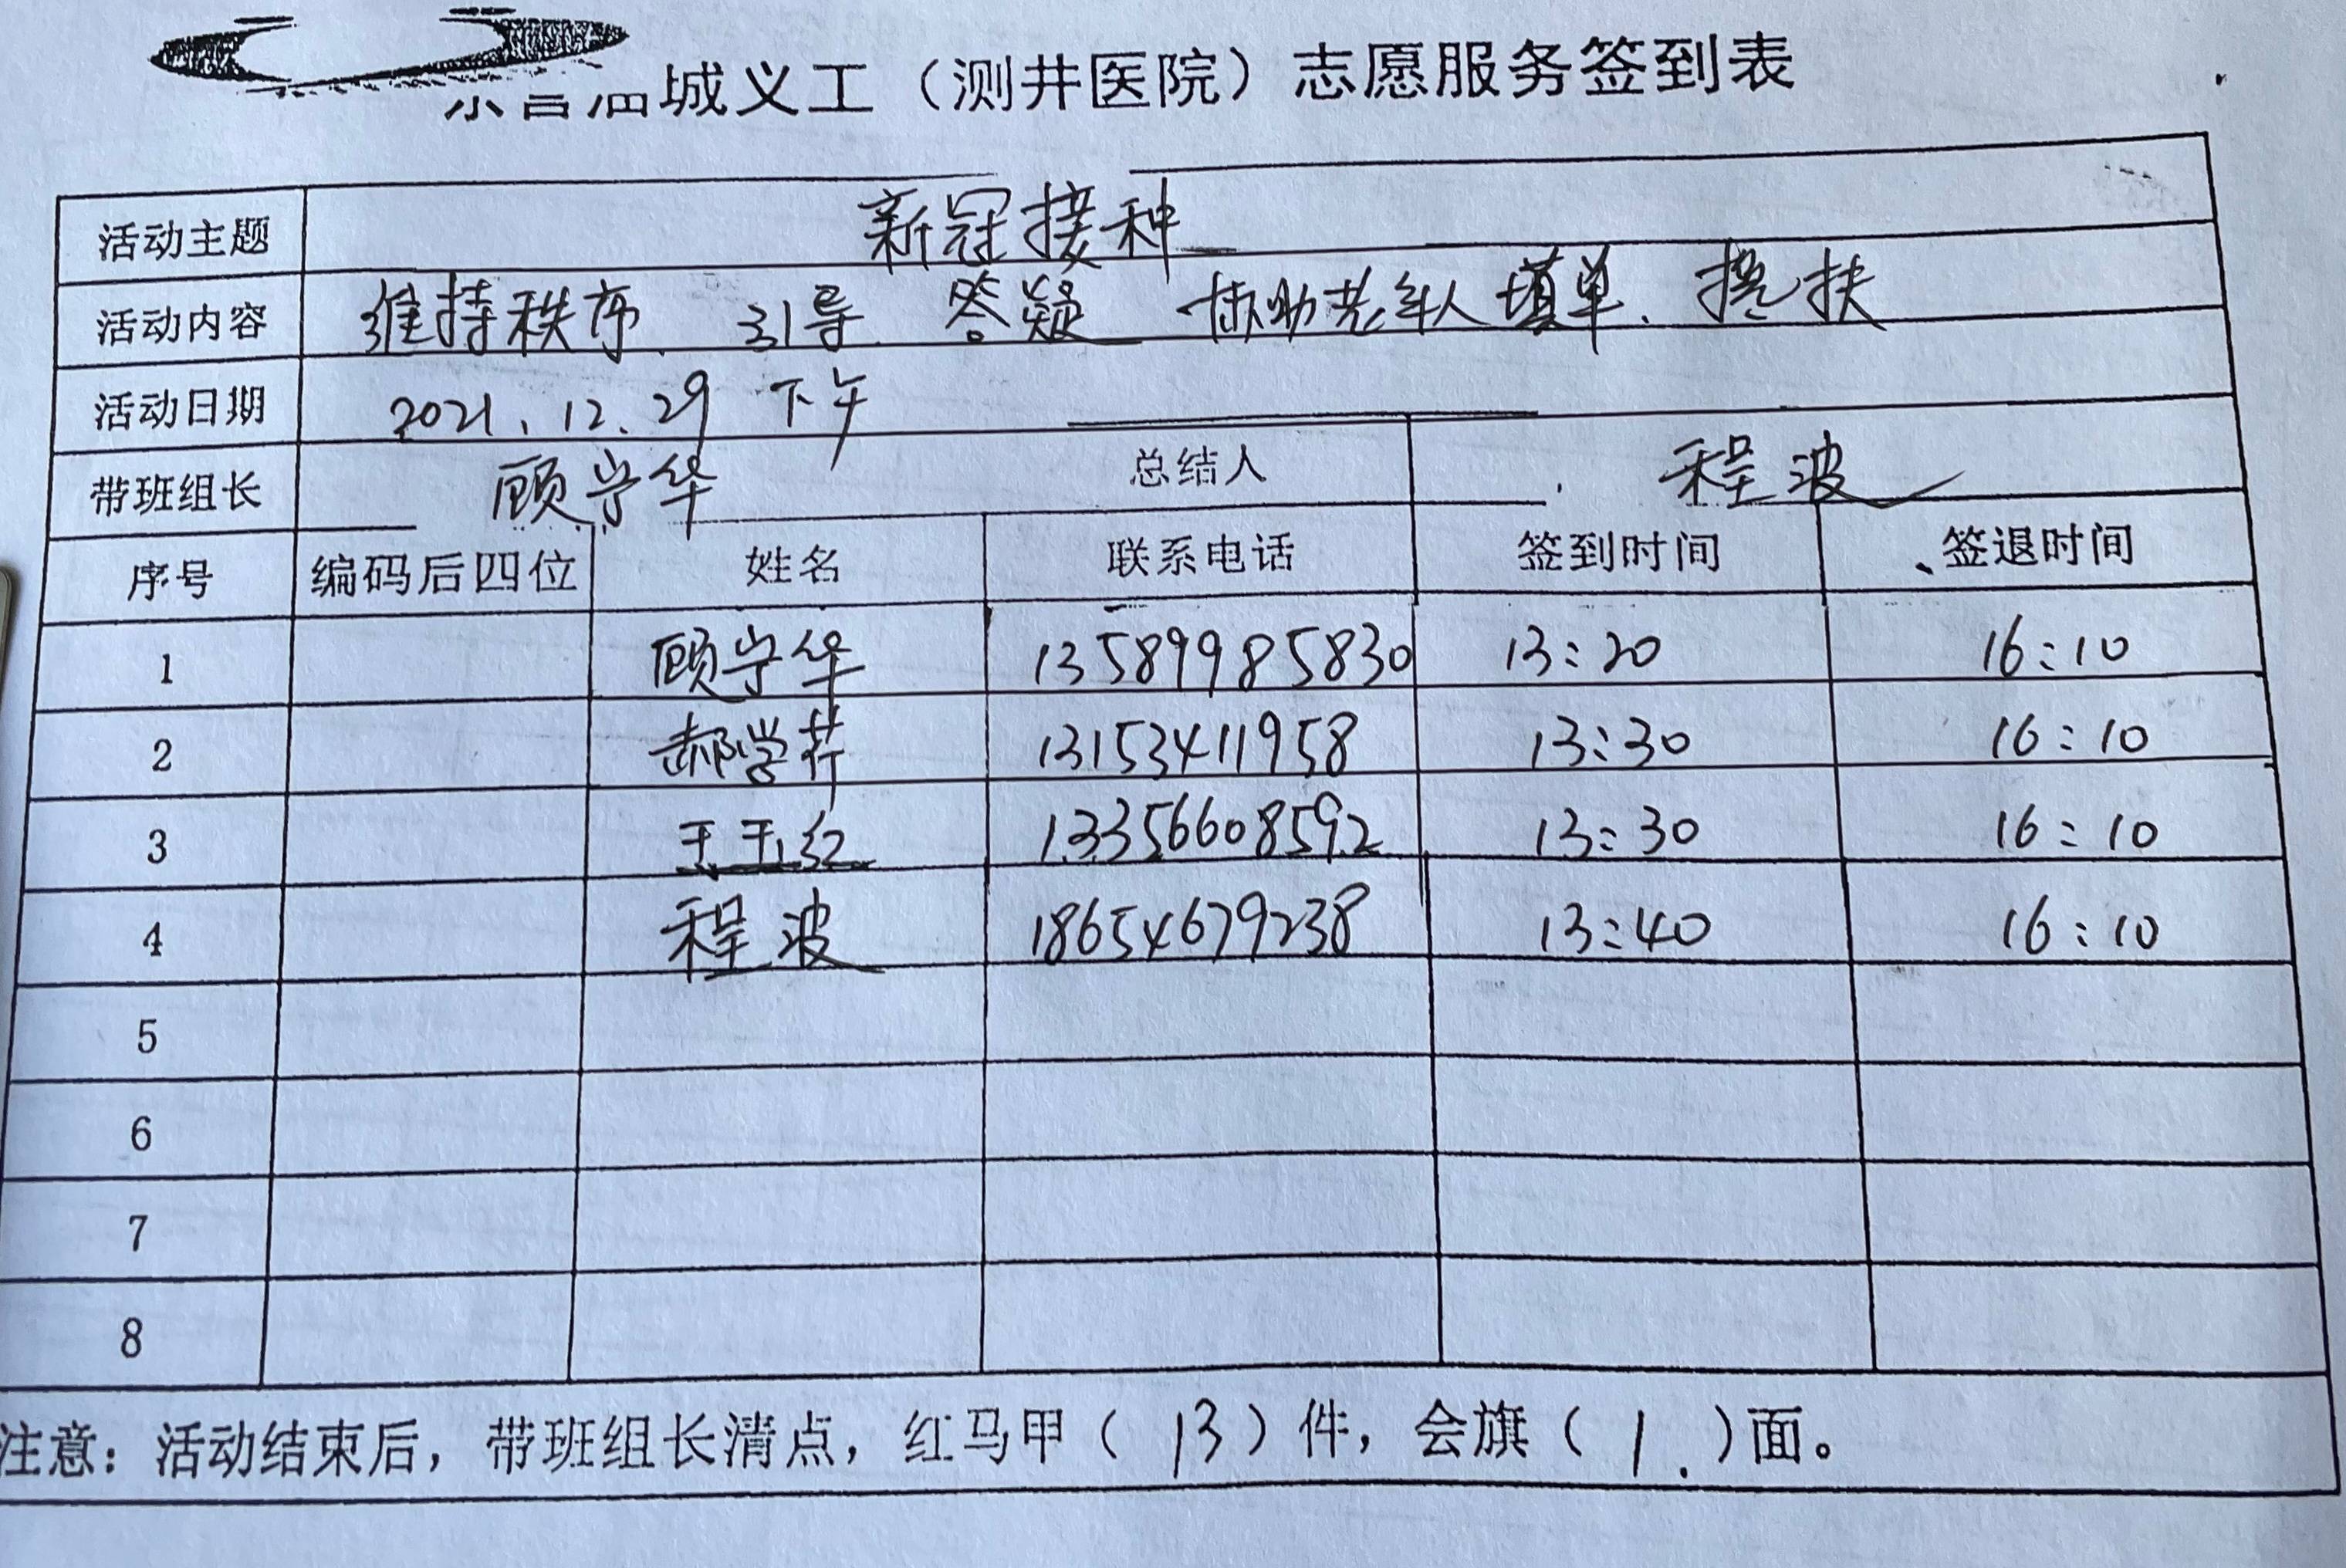 东营油城义工（测井医院）志愿服务签到表
活动主题 新冠接种
活动内容 维持秩序、引导 答疑 协助老年人填单、搀扶
活动日期 2021、12、29 下午
带班组长 顾宁华 总结人 程波
序号 编码后四位 姓名 联系电话 签到时间 签退时间
1 顾宁华 13589985830 13:20 16:10
2 郝学芹 13153411958 13:30 16:10
3 王玉红 13356608592 13:30 16:10
4 程波 18654679238 13:40 16:10
5
6
7
8
注意：活动结束后，带班组长清点，红马甲（13）件，会旗（1）面。